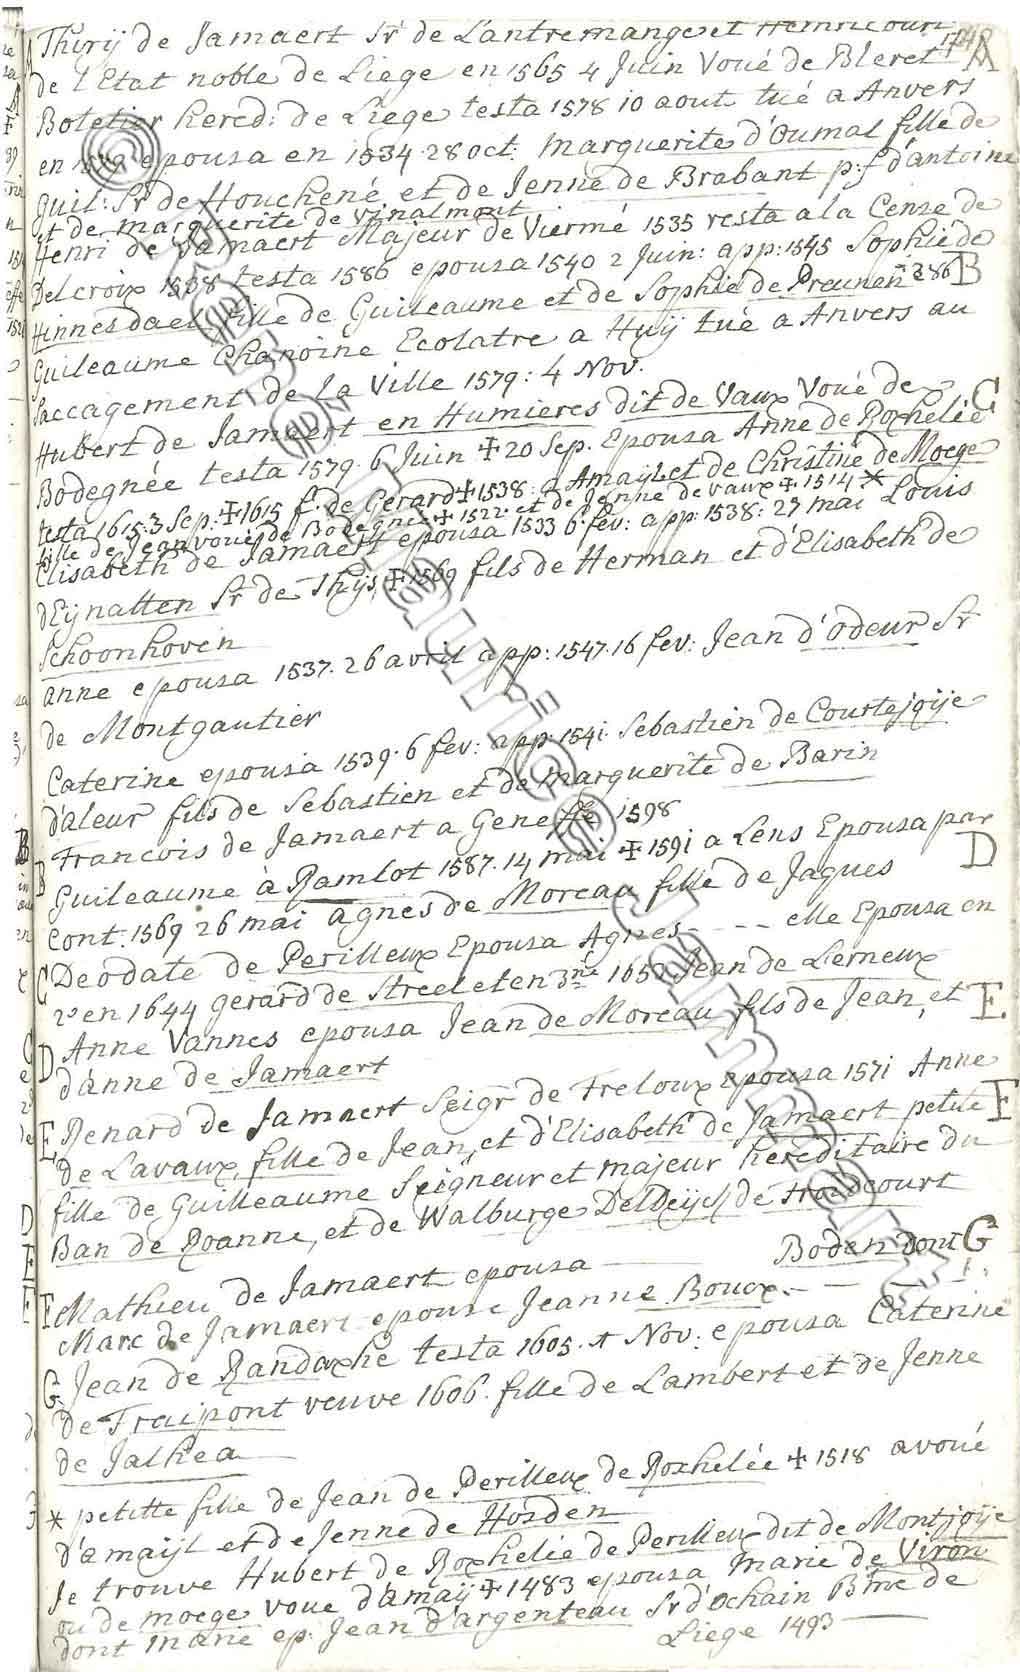 Thirÿ de Jamaert Sr de Lantremange et Hemricourt 1748
de l'Etat noble de Liege en 1565 4 Juin Voué de Bleret A
Botetier hered: de Liege testa 1578 10 aout tué a Anvers
en 1579 epousa en 1534 28 oct: marguerite d'Oumal fille de
Guil: Sr de Houchené et de Jenne de Brabant p:f d'antoine
et de marguerite de vinalmont
Henri de Jamaert Majeur de Viermé 1535 resta a la Cense de
Delcroix 1538 testa 1580 epousa 1540 2 Juin: app: 1545 Sophie de
Hinnesdael fille de Guileaume et de Sophie de Preunen 286 B
Guileaume Chanoine Ecolatre a Huÿ tué a Anvers au
Saccagement de La Ville 1579: 4 Nov.
Hubert de Jamaert en Humieres dit de Vaux Voué de C
Bodegnée testa 1579. 6 Juin + 20 Sep. Epousa Anne de Roxhelée
testa 1615: 3 Sep: + 1615 f. de Gerard + 1538: a Amaÿ et de Christine de Moege
fille de Jean voué de Bodegnée + 1522 et de Jenne de vaux + 1514 *
Elisabeth de Jamaert epousa 1533 6 fev: app: 1538: 27 mai Louis
d'Eÿnatten Sr de Thÿs + 1569 fils de Herman et d'Elisabeth de
Schoonhoven
anne epousa 1537. 26 avril app: 1547. 16 fev: Jean d'Odeur Sr
de Montgautier
Caterine epousa 1539. 6 fev: app: 1541. Sebastien de Courtejoÿe
d'aleur fils de Sebastien et de marguerite de Barin
Francois de Jamaert a Geneffe 1598
B Guileaume à Ramlot 1587. 14 mai + 1591 a Lens Epousa par
cont. 1569 26 mai agnes de Moreau fille de Jaques D
C Deodate de Perilleux Epousa Agnes - - - - elle Epousa en
2° en 1644 gerard de Streel et en 3me 1652 Jean de Lerneux
D Anne Vannes epousa Jean de Moreau fils de Jean, et E.
d'anne de Jamaert
E Renard de Jamaert Seigr de Freloux epousa 1571 Anne
de Lavaux, fille de Jean, et d'Elisabeth de Jamaert petite F
fille de Guilleaume Seigneur et majeur hereditaire du
Ban de Roanne, et de Walburge de Froidcourt
F Mathieu de Jamaert epousa Boden dont G
Marc de Jamaert epouse Jeanne Boucx. -
G Jean de Randaxhe testa 1605. Nov: epousa Caterine
de Fraipont veuve 1606. fille de Lambert et de Jenne
de Jalhea
* petitte fille de Jean de Perilleux de Roxhelée + 1518 avoué
d'amaÿ et de Jenne de Hosden
Je trouve Hubert de Roxhelée de Perilleux dit de Montjoÿe
ou de moege voué d'amaÿ + 1483 epousa Marie de Viron
dont Marie ep: Jean d'argenteau Sr d'Ochain Bme de
Liege 1493
© René Maurice Jammart